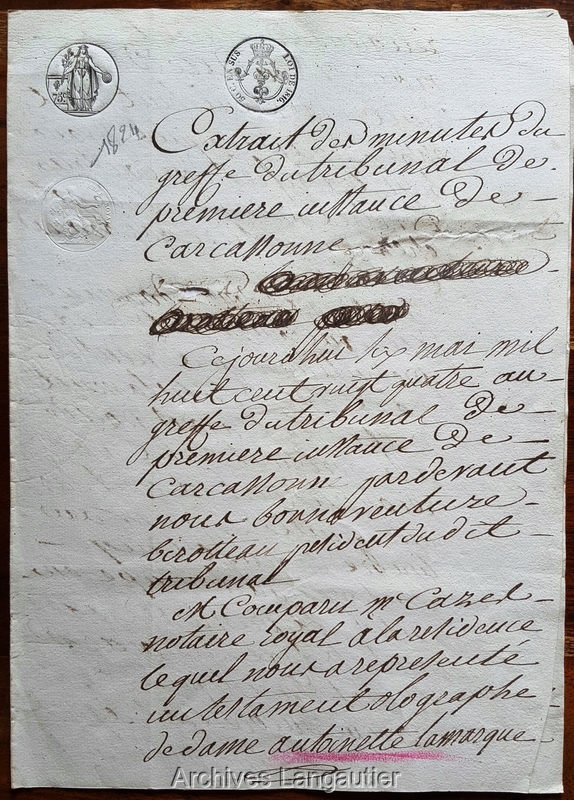 50 C. EN SUS LOI DE 1816.
75C
1824
Extrait des minutes du
greffe du tribunal de
premiere instance de
Carcassonne
Cejourdhui six mai mil
huit cent vingt quatre au
greffe du tribunal de
premiere instance de
Carcassonne pardevant
nous bonnaventure
birotteau president dudit
tribunal
A Comparu Mr Cazes
notaire royal a la residence
lequel nous a representé
un testament olographe
de dame antoinette lamarque
Archives Langautier